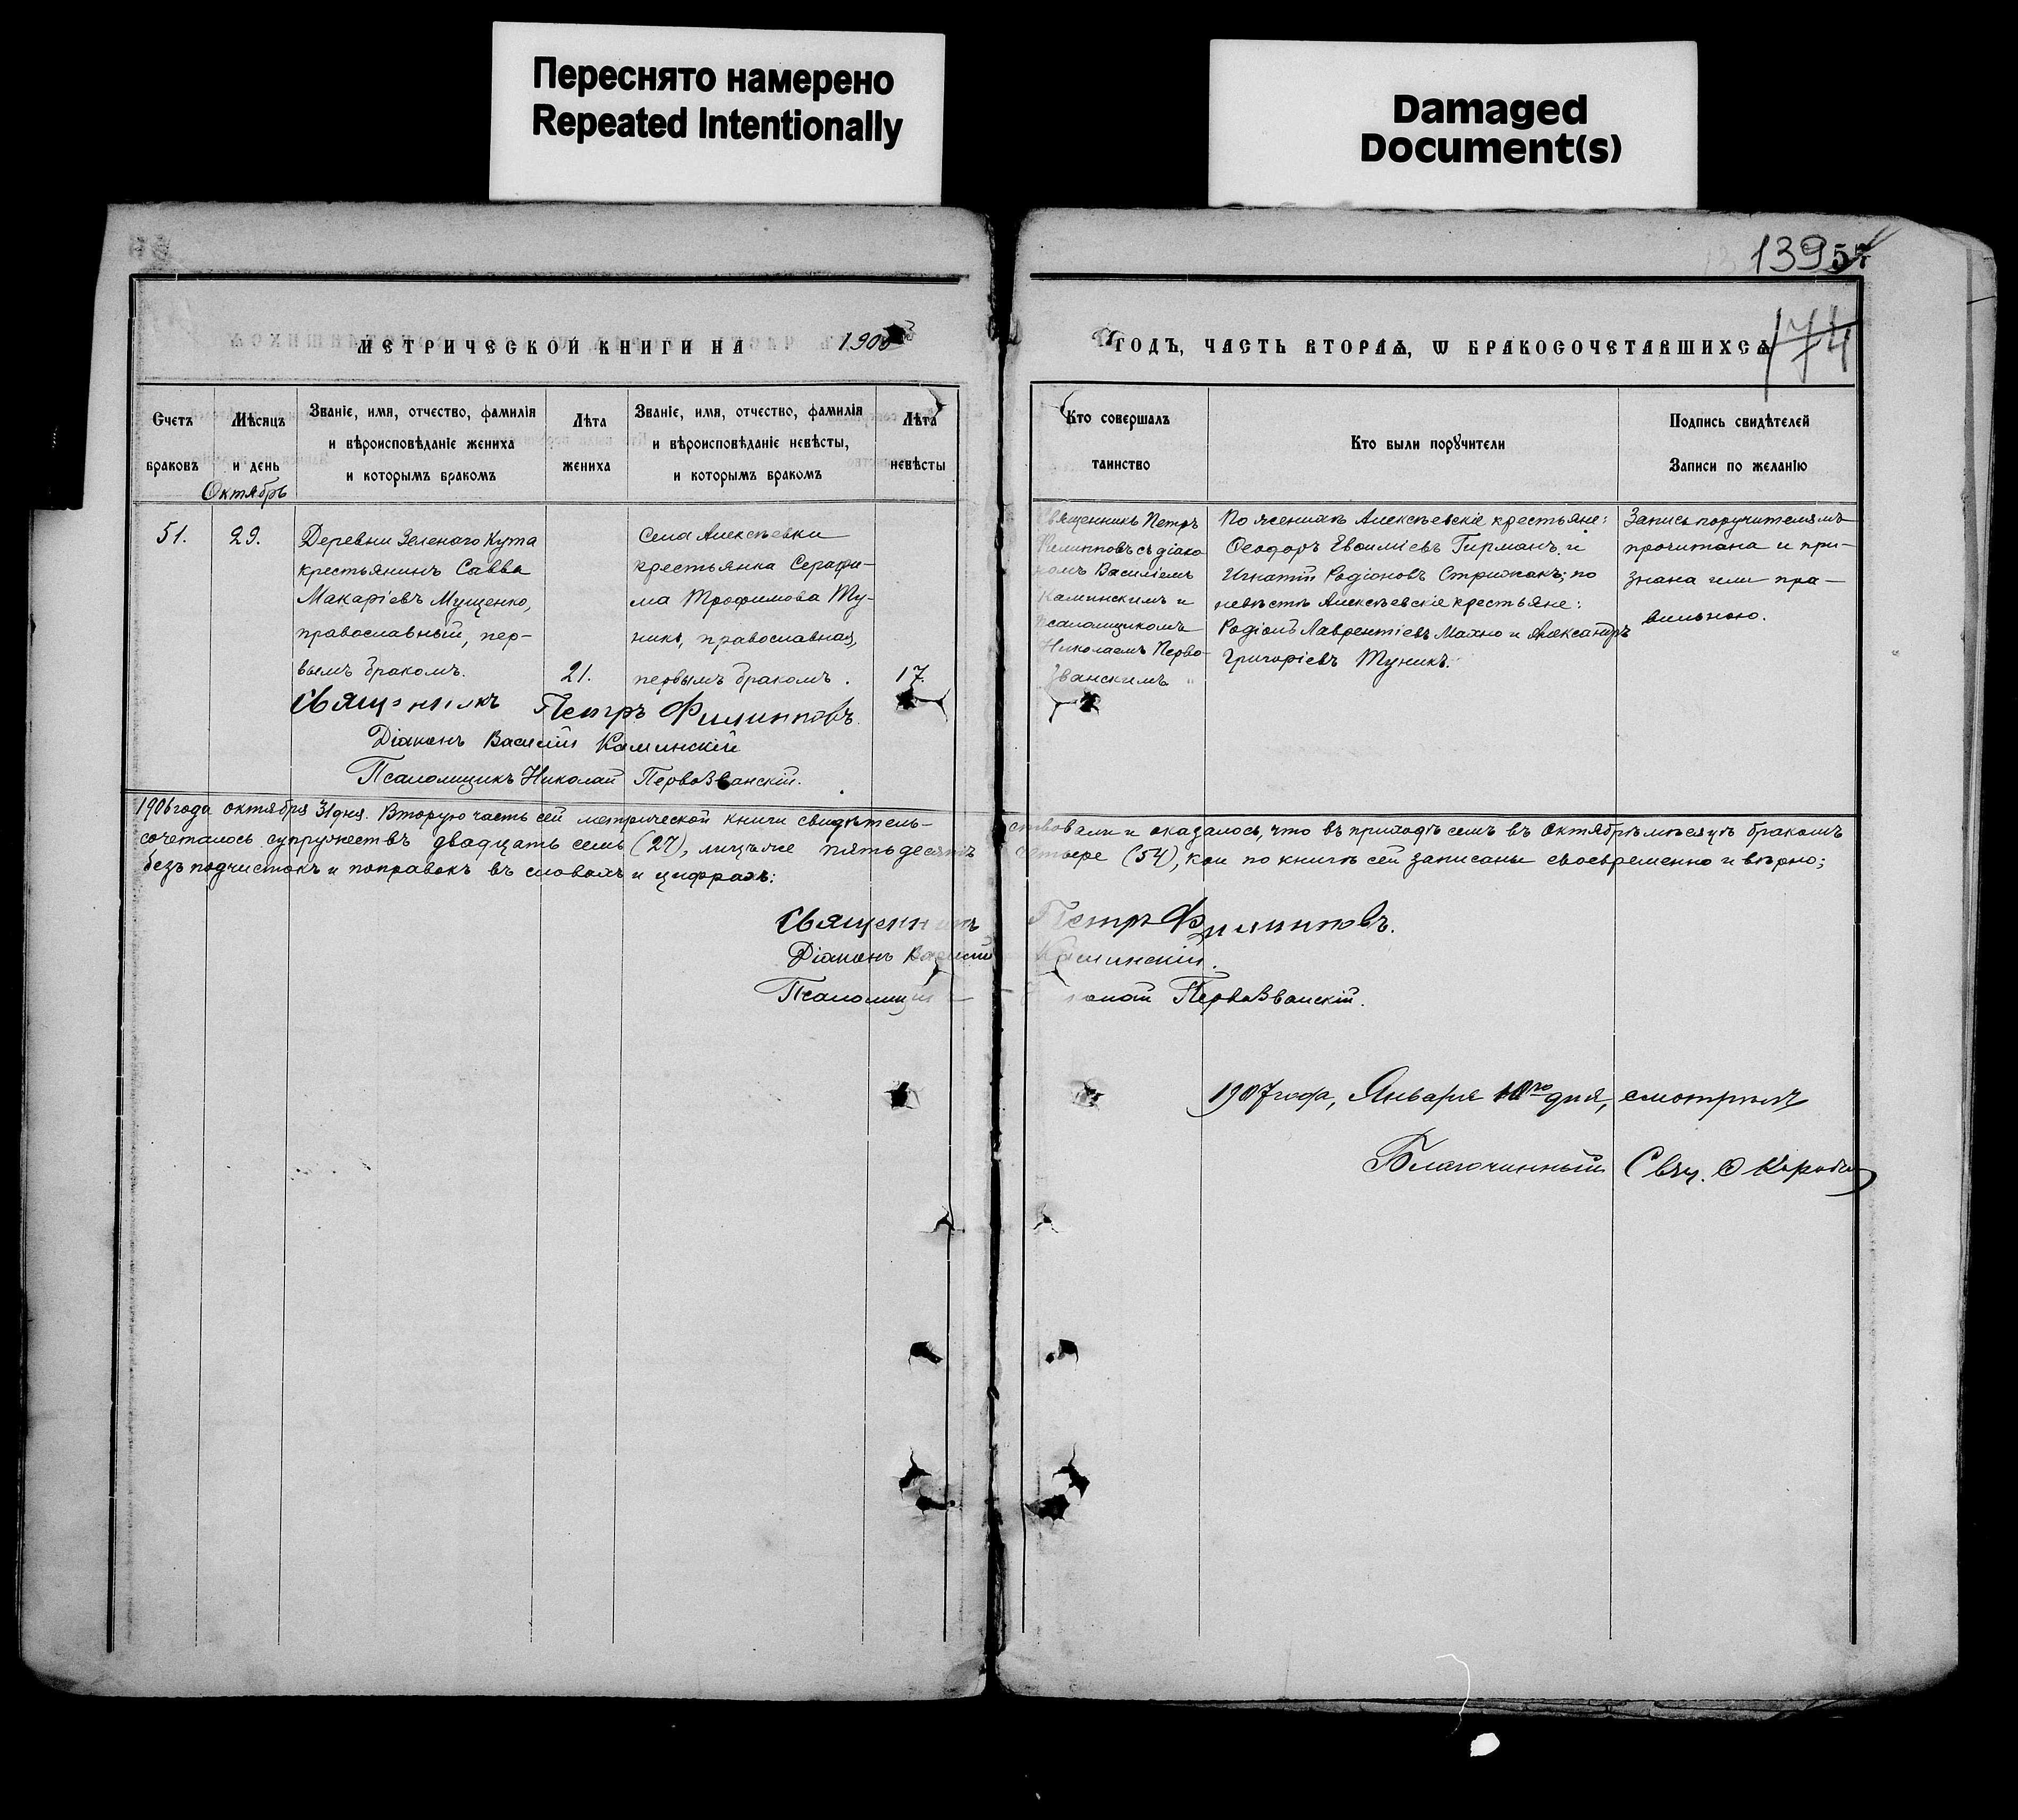 Переснято намерено
Repeated Intentionally
Damaged
Document(s)
139
57
174
МЕТРИЧЕСКОЙ КНИГИ НА 1906
ГОДЪ, ЧАСТЬ ВТОРАѦ, Ѡ БРАКОСОЧЕТАВШИХСѦ
Счетъ
браковъ
Мѣсяцъ
и день
Октябрь
Званіе, имя, отчество, фамилія
и вѣроисповѣданіе жениха
и которымъ бракомъ
Лѣта
жениха
Званіе, имя, отчество, фамилія
и вѣроисповѣданіе невѣсты,
и которымъ бракомъ
Лѣта
невѣсты
Кто совершалъ
таинство
Кто были порꙋчители
Подпись свидѣтелей
Записи по желанію
51.
29.
Деревни Зеленаго Кута
крестьянинъ Савва
Макаріевъ Мущенко,
православный, пер-
вымъ бракомъ.
21.
Села Алексѣевки
крестьянка Серафи-
ма Трофимова Ту-
никъ, православная,
первымъ бракомъ.
17.
Священникъ Петръ
Филипповъ съ діако
номъ Василіемъ
Каминскимъ и
псаломщикомъ
Николаемъ Перво-
званскимъ
По женихѣ Алексѣевскіе крестьяне:
Ѳеодоръ Евѳиміевъ Гирманъ и
Игнатій Родіоновъ Стрижакъ; по
невѣстѣ Алексѣевскіе крестьяне:
Родіонъ Лаврентіевъ Махно и Александръ
Григоріевъ Туникъ.
Запись поручителямъ
прочитана и при-
знана ими пра-
вильною.
Священникъ Петръ Филипповъ.
Діаконъ Василій Каминскій
Псаломщикъ Николай Первозванскій.
1906 года октября 31 дня. Вторую часть сей метрической книги свидѣтель-
ствовали и оказалось, что въ приходѣ семъ въ Октябрѣ мѣсяцѣ бракомъ
сочеталось супружествъ двадцать семь (27), лицъ же пятьдесятъ
четыре (54), кои по книгѣ сей записаны своевременно и вѣрно;
безъ подчистокъ и поправокъ въ словахъ и цифрахъ:
Священникъ Петръ Филипповъ.
Діаконъ Василій Каминскій.
Псаломщикъ Николай Первозванскій.
1907 года, Января 10го дня, смотрѣлъ
Благочинный Свящ.